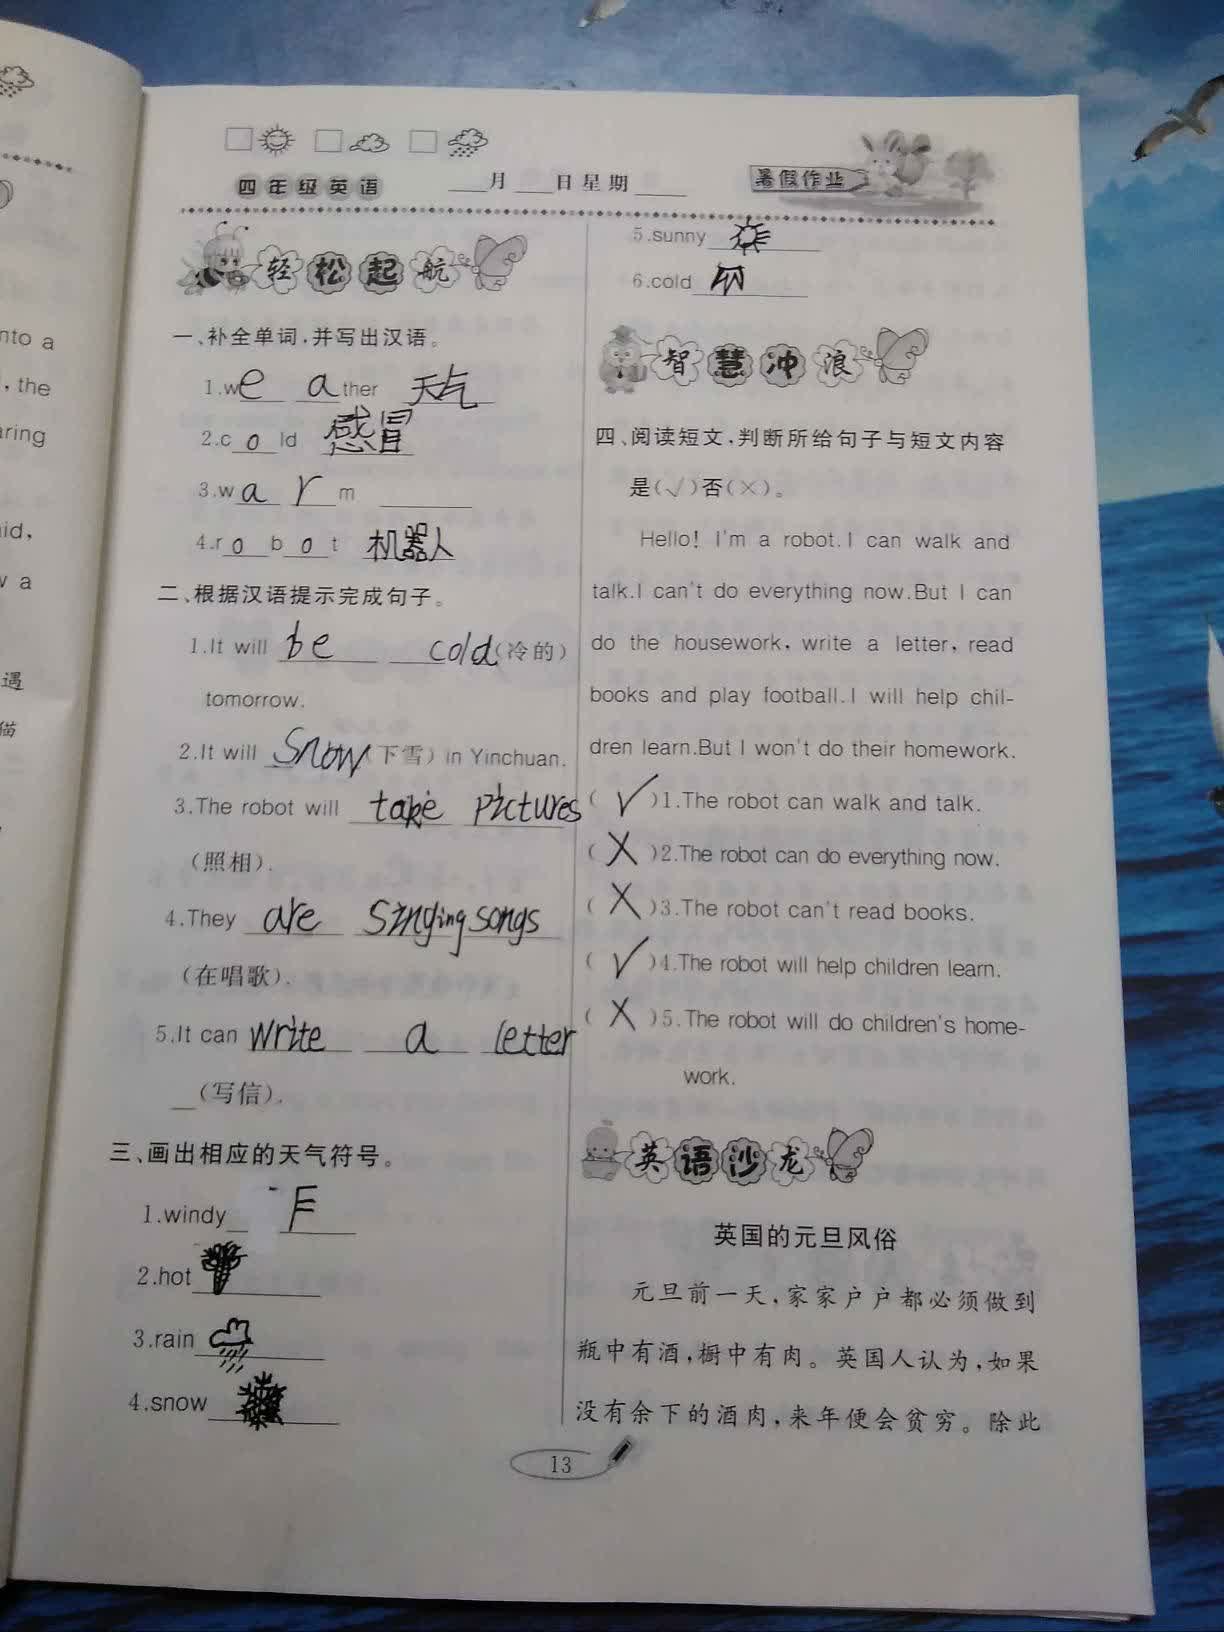 nto a
, the
aring
aid,
w a
遇
猫
四年级英语 ___月___日星期___ 暑假作业
轻松起航
一、补全单词,并写出汉语。
1.we a ther 天气
2.c o ld 感冒
3.w a r m ______
4.r o b o t 机器人
二、根据汉语提示完成句子。
1.It will be cold(冷的)
tomorrow.
2.It will snow(下雪) in Yinchuan.
3.The robot will take pictures
(照相).
4.They are singing songs
(在唱歌).
5.It can write a letter
_(写信).
三、画出相应的天气符号。
1.windy
2.hot
3.rain
4.snow
5.sunny
6.cold
智慧冲浪
四、阅读短文,判断所给句子与短文内容
是(√)否(×)。
Hello! I'm a robot.I can walk and
talk.I can't do everything now.But I can
do the housework, write a letter, read
books and play football.I will help chil-
dren learn.But I won't do their homework.
( √ )1.The robot can walk and talk.
( X )2.The robot can do everything now.
( X )3.The robot can't read books.
( √ )4.The robot will help children learn.
( X )5.The robot will do children's home-
work.
英语沙龙
英国的元旦风俗
元旦前一天,家家户户都必须做到
瓶中有酒,橱中有肉。英国人认为,如果
没有余下的酒肉,来年便会贫穷。除此
13